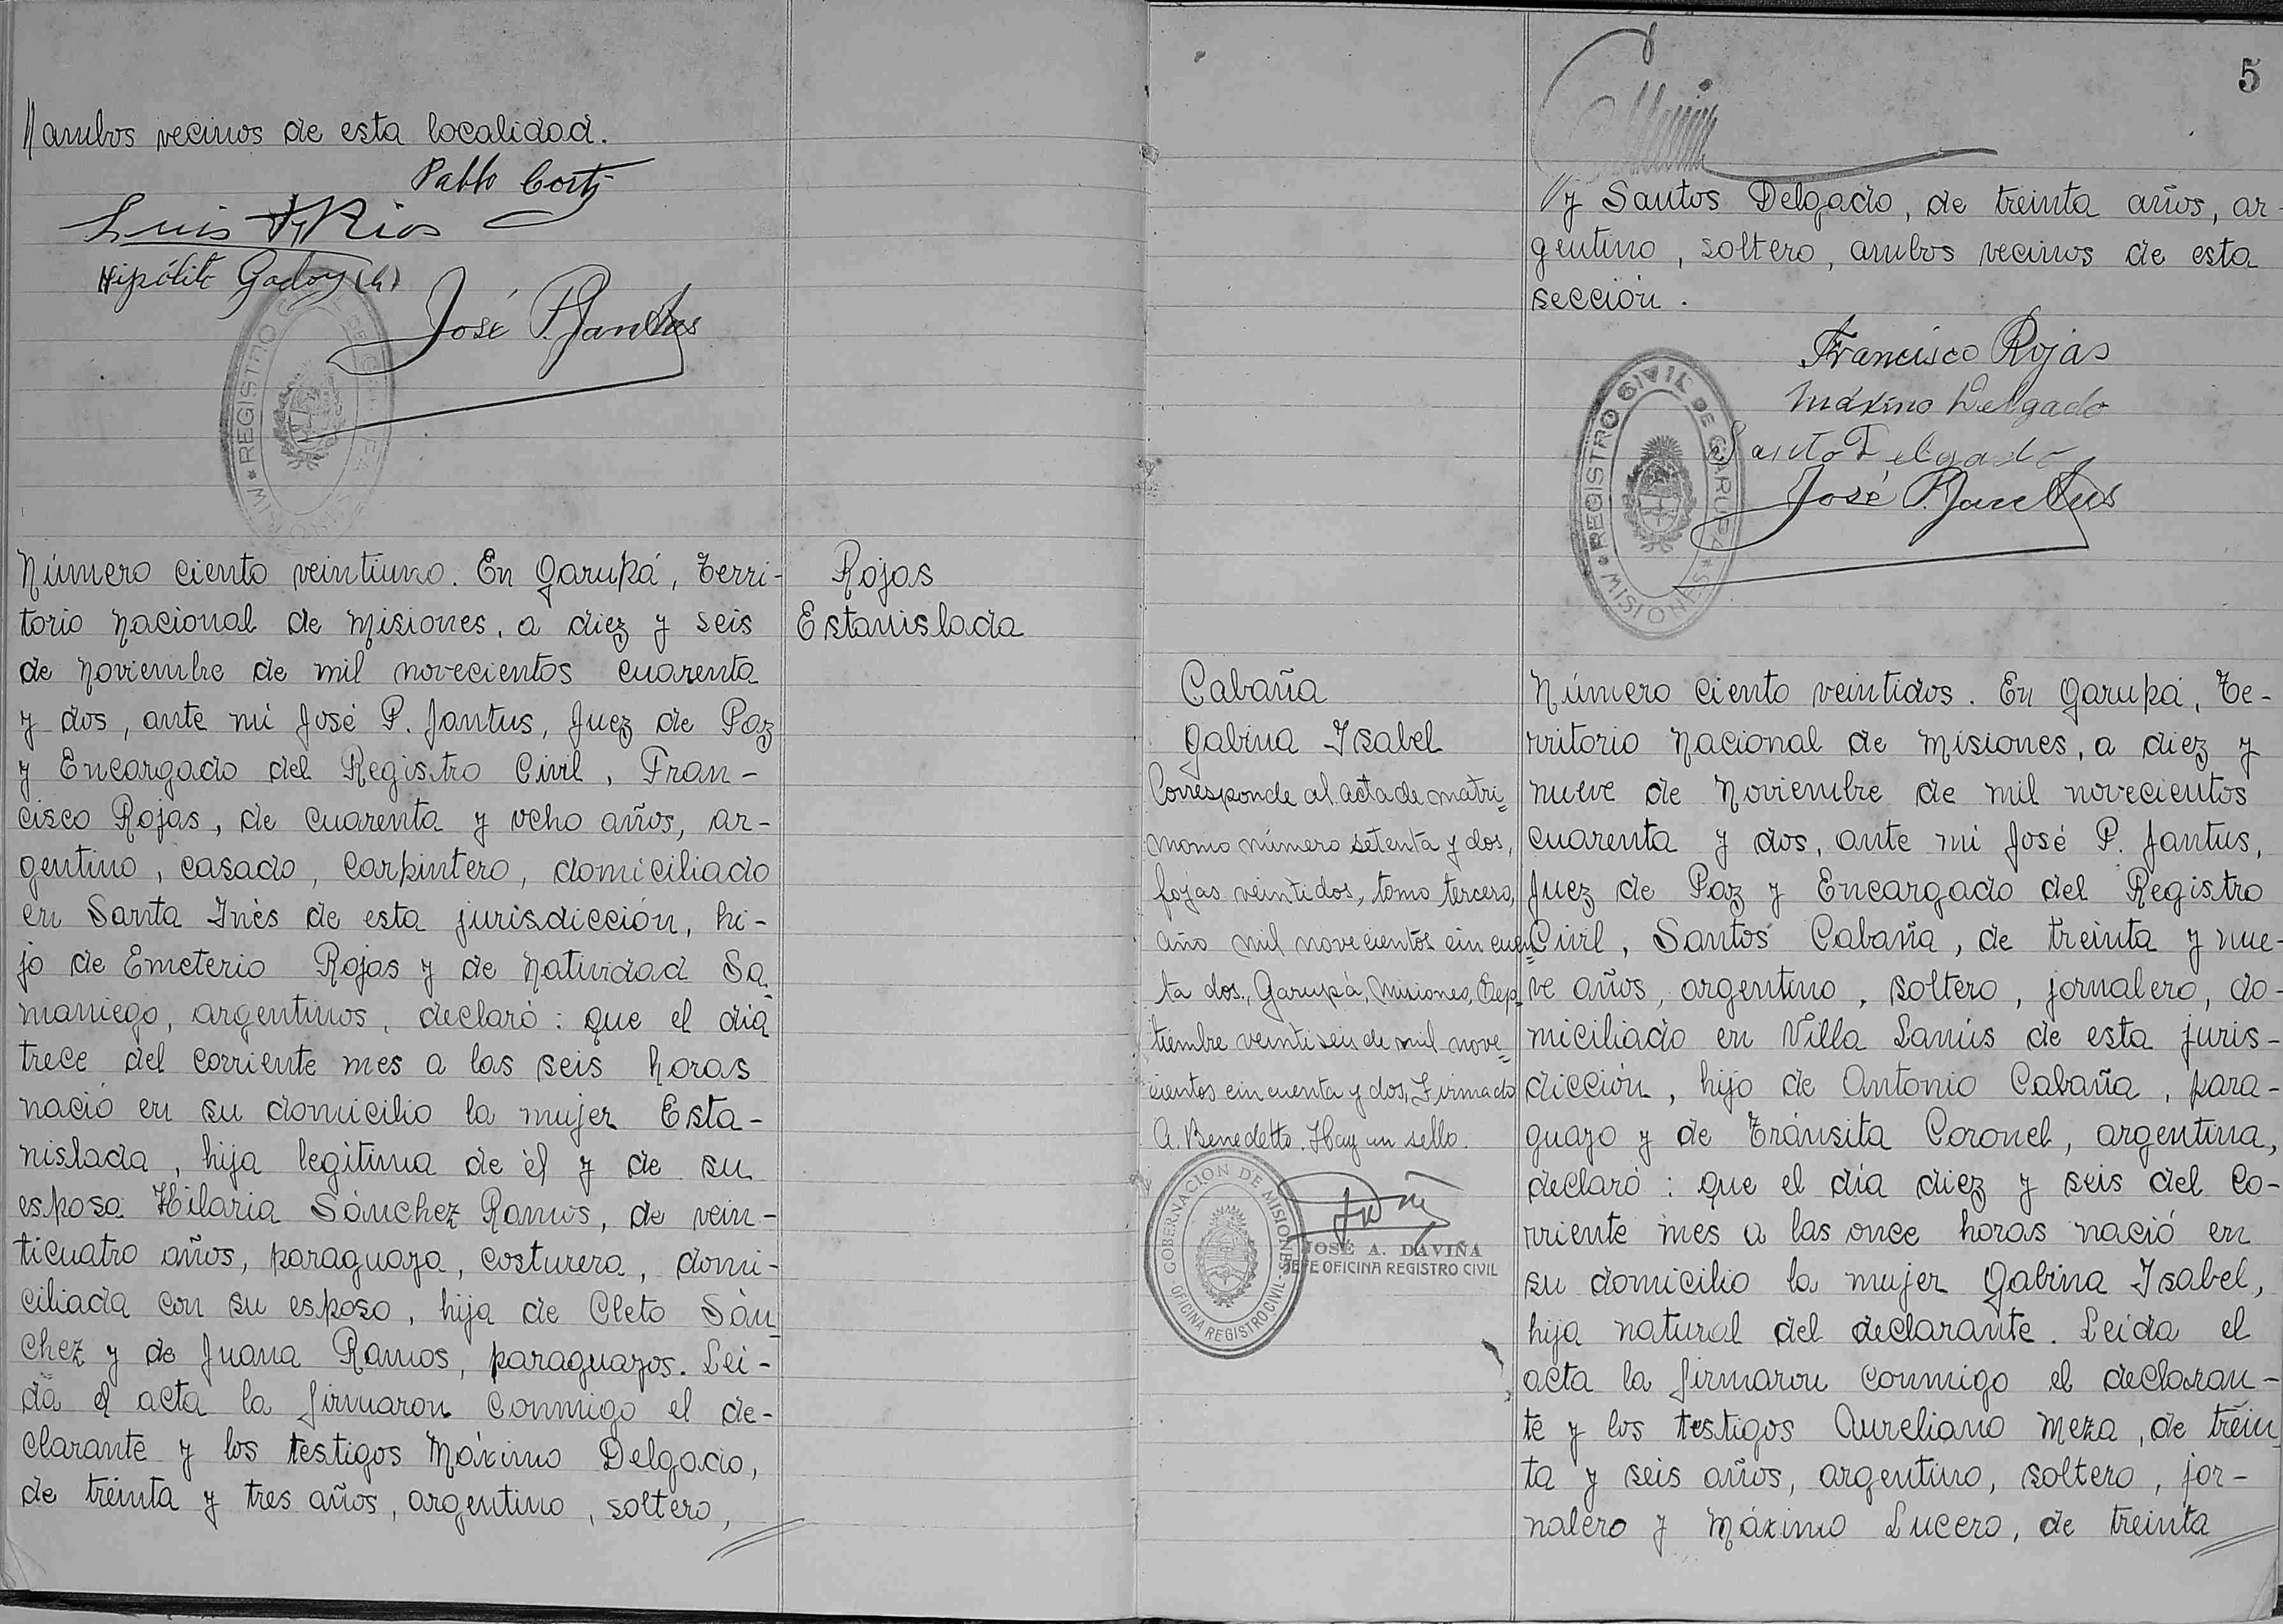 //ambos vecinos de esta localidad.
Pablo Corti
Luis A. Rios
Hipólito Godoy (h)
José P. Jantus
REGISTRO
Número ciento veintiuno. En Garupá, Terri-
torio Nacional de Misiones, a diez y seis
de Noviembre de mil novecientos cuarenta
y dos, ante mi José P. Jantus, Juez de Paz
y Encargado del Registro Civil, Fran-
cisco Rojas, de cuarenta y ocho años, ar-
gentino, casado, carpintero, domiciliado
en Santa Inés de esta jurisdicción, hi-
jo de Emeterio Rojas y de Natividad Sa-
maniego, argentinos, declaró: que el día
trece del corriente mes a las seis horas
nació en su domicilio la mujer Esta-
nislada, hija legítima de él y de su
esposa Hilaria Sánchez Ramos, de vein-
ticuatro años, paraguaya, costurera, domi-
ciliada con su esposo, hija de Cleto Sán-
chez y de Juana Ramos, paraguayos. Leí-
da el acta la firmaron conmigo el de-
clarante y los testigos Máximo Delgado,
de treinta y tres años, argentino, soltero,
Rojas
Estanislada
5
//y Santos Delgado, de treinta años, ar-
gentino, soltero, ambos vecinos de esta
sección.
Francisco Rojas
Máximo Delgado
Santo Delgado
José P. Jantus
REGISTRO CIVIL DE GARUPA * MISIONES *
Cabaña
Gabina Isabel
Corresponde al acta de matri=
monio número setenta y dos,
fojas veintidos, tomo tercero,
año mil novecientos cincuen=
ta dos, Garupá, Misiones, Sep=
tiembre veintiseis de mil nove=
cientos cincuenta y dos, Firmado
A. Benedetto. Hay un sello.
GOBERNACION DE MISIONES
OFICINA REGISTRO CIVIL
JOSÉ A. DAVIÑA
JEFE OFICINA REGISTRO CIVIL
Número ciento veintidos. En Garupá, Te-
rritorio Nacional de Misiones, a diez y
nueve de Noviembre de mil novecientos
cuarenta y dos, ante mi José P. Jantus,
Juez de Paz y Encargado del Registro
Civil, Santos Cabaña, de treinta y nue-
ve años, argentino, soltero, jornalero, do-
miciliado en Villa Lanús de esta juris-
dicción, hijo de Antonio Cabaña, para-
guayo y de Tránsita Coronel, argentina,
declaró: que el día diez y seis del co-
rriente mes a las once horas nació en
su domicilio la mujer Gabina Isabel,
hija natural del declarante. Leída el
acta la firmaron conmigo el declaran-
te y los testigos Aureliano Meza, de trein-
ta y seis años, argentino, soltero, jor-
nalero y Máximo Lucero, de treinta